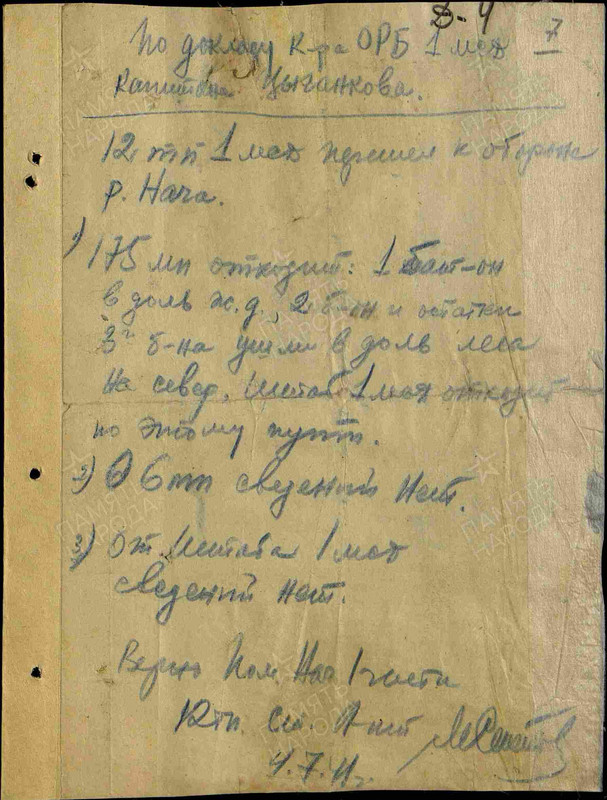 Д-4
7
По докладу к-ра ОРБ 1 мсд
капитана Цыганкова.
12 тп 1 мсд перешел к обороне
р. Нача.
1) 175 мп отходит: 1 бат-он
в доль ж.д., 2 б-он и остатки
3го б-на ушли в доль леса
на север, штаб 1 мсд отходит
по этому пути.
2) О 6 мп сведений нет.
3) От штаба 1 мсд
сведений нет.
Верно Пом. Нач 1 части
12тп. ст. л-нт
4.7.41г.
ПАМЯТЬ
НАРОДА